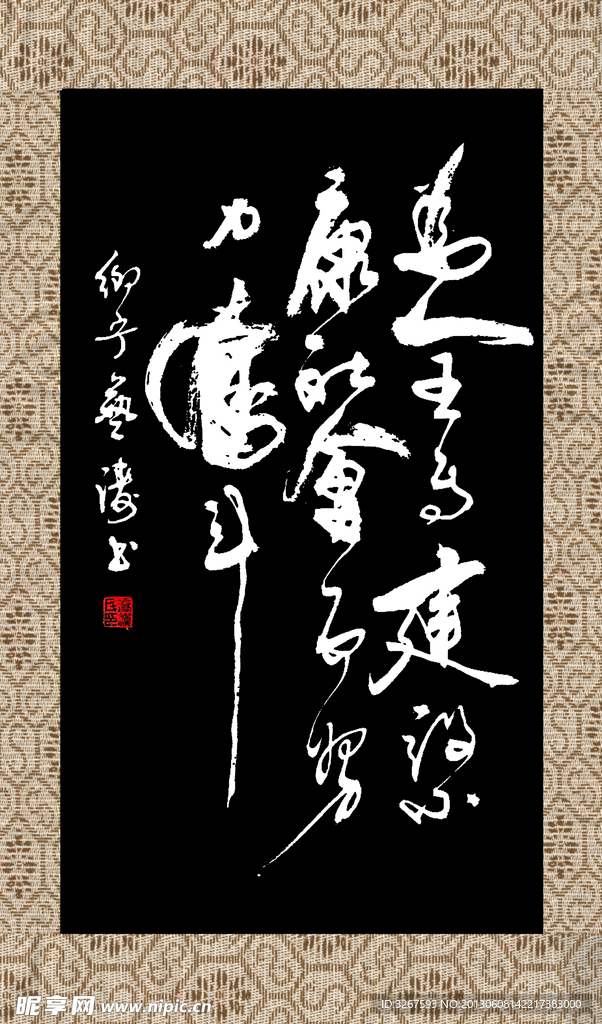 為全面建設小
康社會而努
力奮斗
藝濤书
昵享网 www.nipic.cn
ID:3267593 NO:20130608142217383000